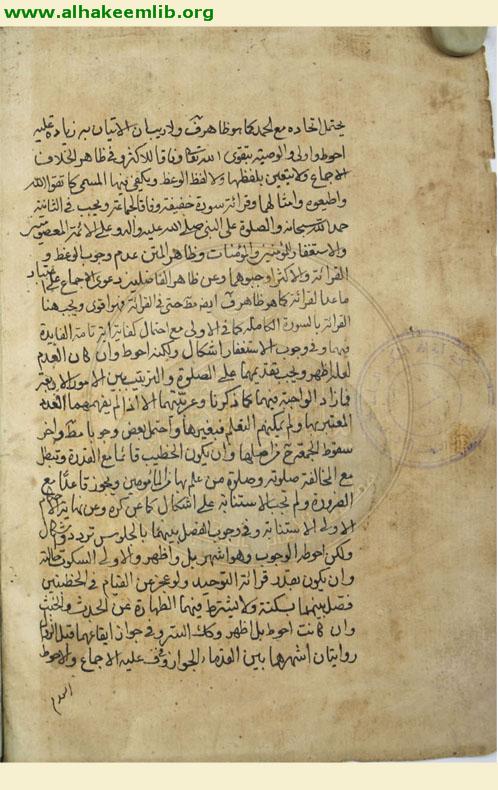 www.alhakeemlib.org
يحتمل اتحاده مع الحمد كما هو ظاهر ولا ريب ان الاتيان به زيادة عليه
احوط واولى والوصية بتقوى الله تعالى وفاقا للاكثر وفي ظاهر الخلاف
الاجماع ولا يتعين بلفظها ولا لفظ الوعظ ويكفي فيها المسمى كاتقوا الله
واطيعوه وامثالهما وقرائة سورة خفيفة وفاقا لجماعة ويجب في الثانية
حمد الله سبحانه والصلوة على النبي صلى الله عليه واله وعلى الائمة المعصومين
والاستغفار للمؤمنين والمؤمنات وظاهر المتن عدم وجوب الوعظ و
القرائة والاكثر اوجبوهما وعن ظاهر الفاضلين دعوى الاجماع على
ما عدا القرائة كما هو ظاهر حتى في القرائة فهو اقوى ويجب هنا
القرائة بالسورة الكاملة كما في الاولى مع احتمال كفاية اية تامة الفايدة
فيها وفي وجوب الاستغفار اشكال ولكنه احوط وان كان العدم
لعله اظهر ويجب تقديمهما على الصلوة والترتيب بين الامور الاربعة
فما زاد الواجبة فيهما كما ذكرنا وعربيتهما الا اذا لم يفهمهما العدد
المعتبر بها ولم يمكنهم التعلم فبغيرها واحتمل بعض وجوبها مط واخر
سقوط الجمعة ح من اصلها وان يكون الخطيب قائما مع القدرة وتبطل
مع المخالفة صلوته وصلوة من علم بها من المأمومين ويجوز قاعدا مع
الضرورة ولم تجب الاستنابة على اشكال كما عن كره وعن نهاية الاحكام
الاولى الاستنابة وفي وجوب الفصل بينهما بالجلوس تردد واشكال
ولكن احوط الوجوب وهو اشهر بل واظهر والاولى السكوت حالته
وان يكون بقدر قرائة التوحيد ولو عجز عن القيام في الخطبتين
فصل بينهما بسكتة ولا يشترط فيهما الطهارة عن الحدث والخبث
وان كانت احوط بل اظهر وكذا الستر وفي جواز ايقاعهما قبل الزوال
روايتان اشهرهما بين القدماء الجواز وفي ف عليه الاجماع والاحوط